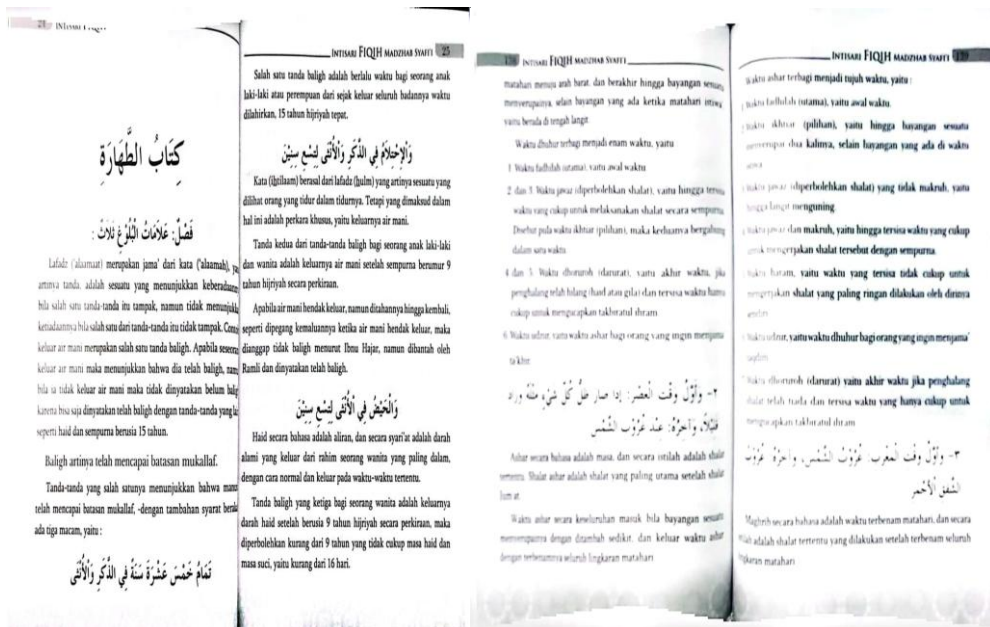 24 INTISARI
كِتَابُ الطَّهَارَةِ
فَصْلٌ: عَلَامَاتُ الْبُلُوْغِ ثَلَاثٌ :
Lafadz ('alaamaat) merupakan jama' dari kata ('alaamah),
artinya tanda, adalah sesuatu yang menunjukkan keberadaan
bila salah satu tanda-tanda itu tampak, namun tidak menunjukkan
ketiadaannya bila salah satu dari tanda-tanda itu tidak tampak.
keluar air mani merupakan salah satu tanda baligh. Apabila
keluar air mani maka menunjukkan bahwa dia telah baligh,
bila ia tidak keluar air mani maka tidak dinyatakan belum
karena bisa saja dinyatakan telah baligh dengan tanda-tanda yang
seperti haid dan sempurna berusia 15 tahun.
Baligh artinya telah mencapai batasan mukallaf.
Tanda-tanda yang salah satunya menunjukkan bahwa
telah mencapai batasan mukallaf, -dengan tambahan syarat
ada tiga macam, yaitu :
تَمَامُ خَمْسَ عَشْرَةَ سَنَةً فِي الذَّكَرِ وَالْأُنْثَى
INTISARI FIQIH MADZHAB SYAFI'I 25
Salah satu tanda baligh adalah berlalu waktu bagi seorang anak
laki-laki atau perempuan dari sejak keluar seluruh badannya waktu
dilahirkan, 15 tahun hijriyah tepat.
وَالْاِحْتِلَامُ فِي الذَّكَرِ وَالْأُنْثَى لِتِسْعِ سِنِيْنَ
Kata (ihtilaam) berasal dari lafadz (hulm) yang artinya sesuatu yang
dilihat orang yang tidur dalam tidurnya. Tetapi yang dimaksud dalam
hal ini adalah perkara khusus, yaitu keluarnya air mani.
Tanda kedua dari tanda-tanda baligh bagi seorang anak laki-laki
dan wanita adalah keluarnya air mani setelah sempurna berumur 9
tahun hijriyah secara perkiraan.
Apabila air mani hendak keluar, namun ditahannya hingga kembali,
seperti dipegang kemaluannya ketika air mani hendak keluar, maka
dianggap tidak baligh menurut Ibnu Hajar, namun dibantah oleh
Ramli dan dinyatakan telah baligh.
وَالْحَيْضُ فِي الْأُنْثَى لِتِسْعِ سِنِيْنَ
Haid secara bahasa adalah aliran, dan secara syari'at adalah darah
alami yang keluar dari rahim seorang wanita yang paling dalam,
dengan cara normal dan keluar pada waktu-waktu tertentu.
Tanda baligh yang ketiga bagi seorang wanita adalah keluarnya
darah haid setelah berusia 9 tahun hijriyah secara perkiraan, maka
diperbolehkan kurang dari 9 tahun yang tidak cukup masa haid dan
masa suci, yaitu kurang dari 16 hari.
INTISARI FIQIH MADZHAB SYAFI'I
matahari menuju arah barat, dan berakhir hingga bayangan sesuatu
menyerupainya, selain bayangan yang ada ketika matahari istiwa
yaitu berada di tengah langit.
Waktu dhuhur terbagi menjadi enam waktu, yaitu
1 Waktu fadhilah (utama), yaitu awal waktu
2 dan 3. Waktu jawaz (diperbolehkan shalat), yaitu hingga tersisa
waktu yang cukup untuk melaksanakan shalat secara sempurna
Disebut pula waktu ikhtiar (pilihan), maka keduanya bergabung
dalam satu waktu
4 dan 5. Waktu dhoruroh (darurat), yaitu akhir waktu, jika
penghalang telah hilang (haid atau gila) dan tersisa waktu hanya
cukup untuk mengucapkan takbiratul ihram
6 Waktu udzur, yaitu waktu ashar bagi orang yang ingin menjama'
ta'khir
٢- وَأَوَّلُ وَقْتِ الْعَصْرِ: إِذَا صَارَ ظِلُّ كُلِّ شَيْءٍ مِثْلَهُ وَزَادَ
قَلِيْلًا، وَآخِرُهُ: عِنْدَ غُرُوْبِ الشَّمْسِ
Ashar secara bahasa adalah masa, dan secara istilah adalah shalat
tertentu. Shalat ashar adalah shalat yang paling utama setelah shalat
Jum'at
Waktu ashar secara keseluruhan masuk bila bayangan sesuatu
menyerupainya dengan ditambah sedikit, dan keluar waktu ashar
dengan terbenamnya seluruh lingkaran matahari
INTISARI FIQIH MADZHAB SYAFI'I
Waktu ashar terbagi menjadi tujuh waktu, yaitu :
Waktu fadhilah (utama), yaitu awal waktu.
Waktu ikhtiar (pilihan), yaitu hingga bayangan sesuatu
menyerupai dua kalinya, selain bayangan yang ada di waktu
Waktu jawaz (diperbolehkan shalat) yang tidak makruh, yaitu
hingga langit menguning.
Waktu jawaz dan makruh, yaitu hingga tersisa waktu yang cukup
untuk mengerjakan shalat tersebut dengan sempurna.
Waktu haram, yaitu waktu yang tersisa tidak cukup untuk
mengerjakan shalat yang paling ringan dilakukan oleh dirinya
sendiri
Waktu udzur, yaitu waktu dhuhur bagi orang yang ingin menjama'
taqdim
Waktu dhoruroh (darurat) yaitu akhir waktu jika penghalang
shalat telah tiada dan tersisa waktu yang hanya cukup untuk
mengucapkan takbiratul ihram
٣- وَأَوَّلُ وَقْتِ الْمَغْرِبِ: غُرُوْبُ الشَّمْسِ، وَآخِرُهُ غُرُوْبُ
الشَّفَقِ الْأَحْمَرِ
Maghrib secara bahasa adalah waktu terbenam matahari, dan secara
istilah adalah shalat tertentu yang dilakukan setelah terbenam seluruh
lingkaran matahari